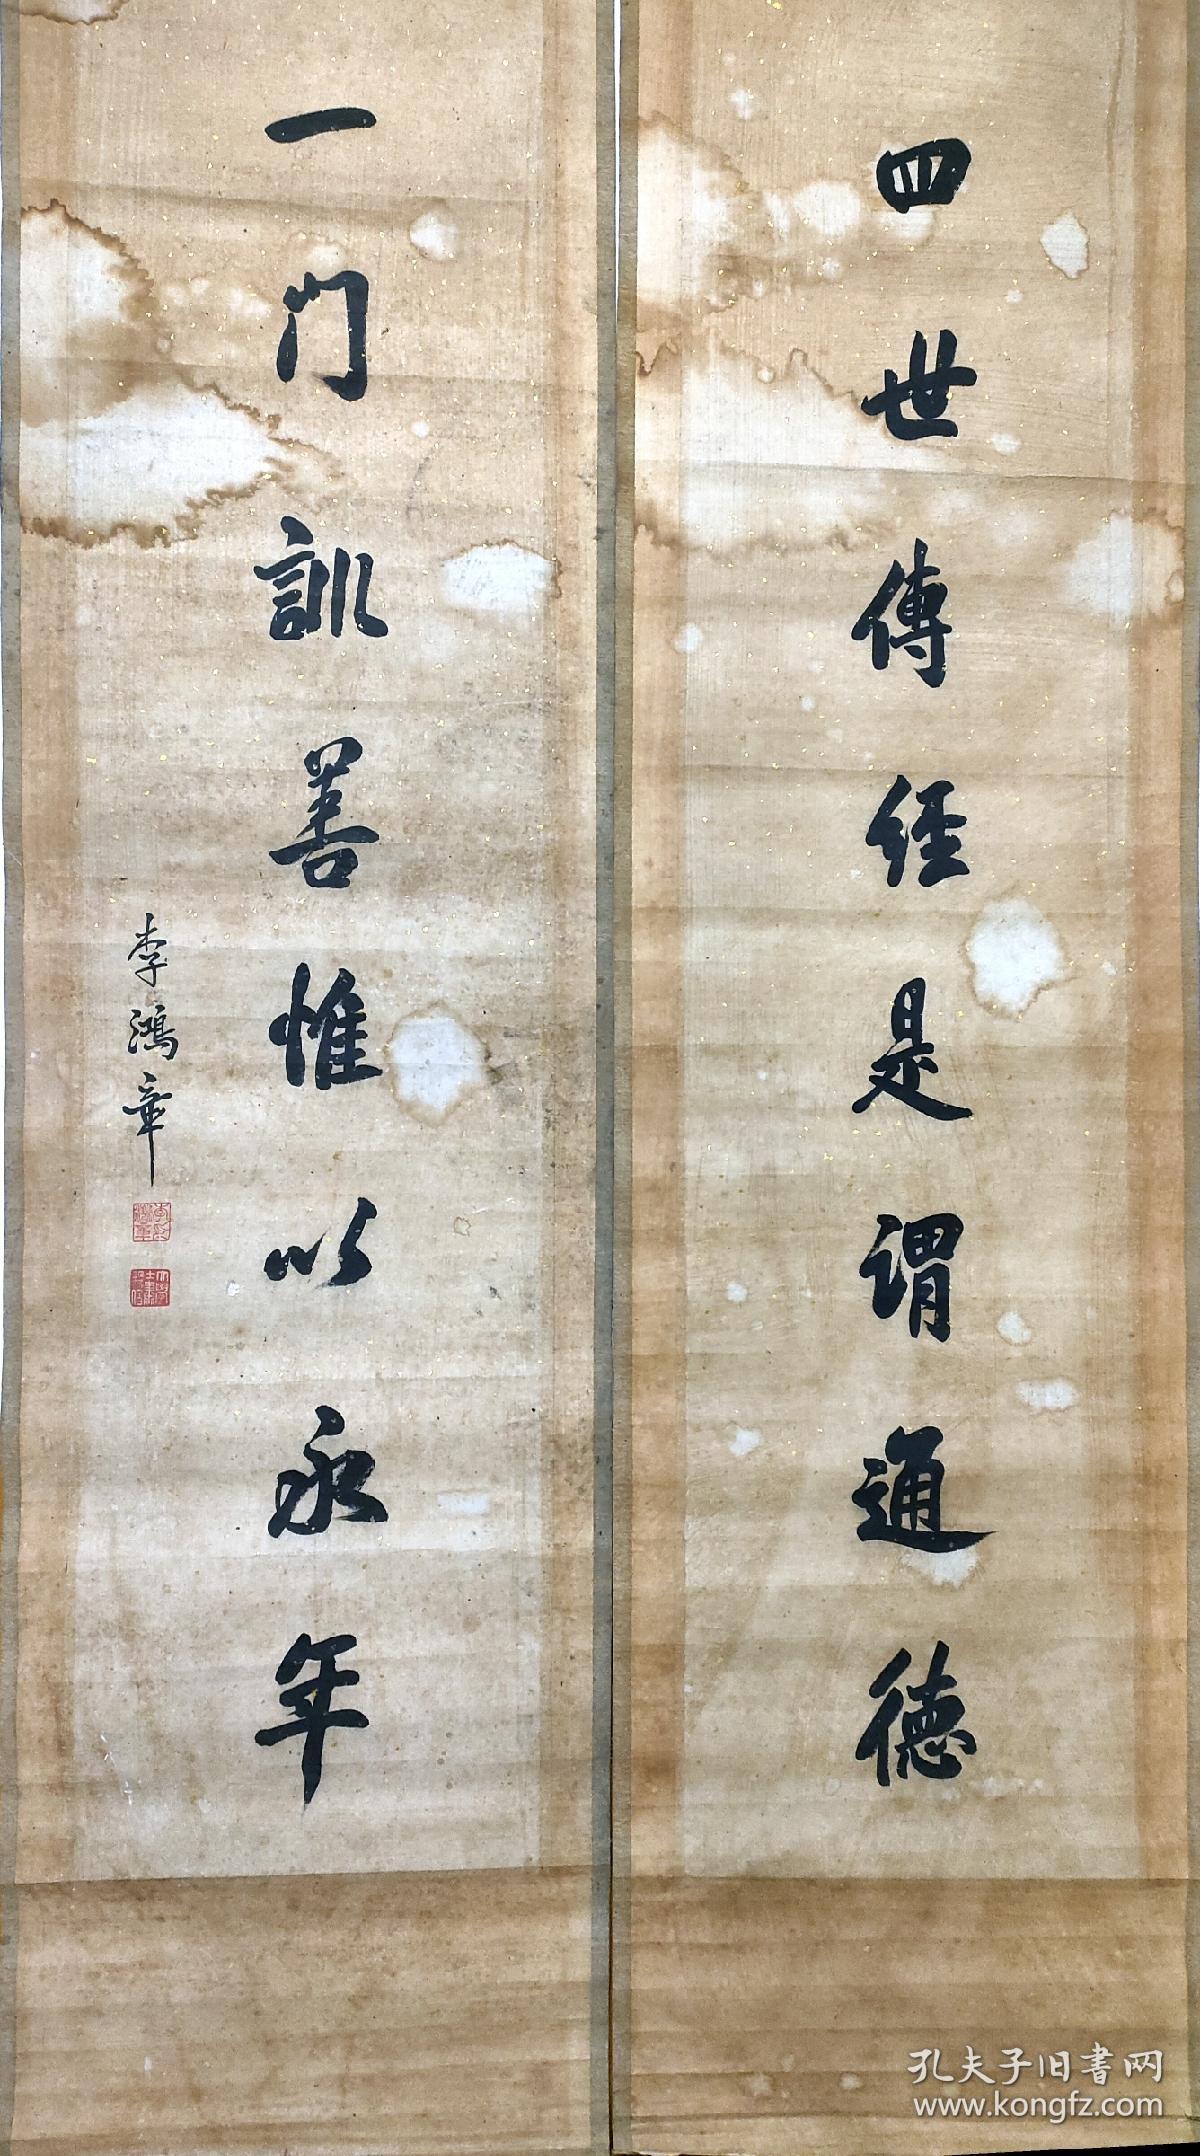 四世傳经是谓通德
一门訓善惟以永年
李鴻章
孔夫子旧書网
www.kongfz.com